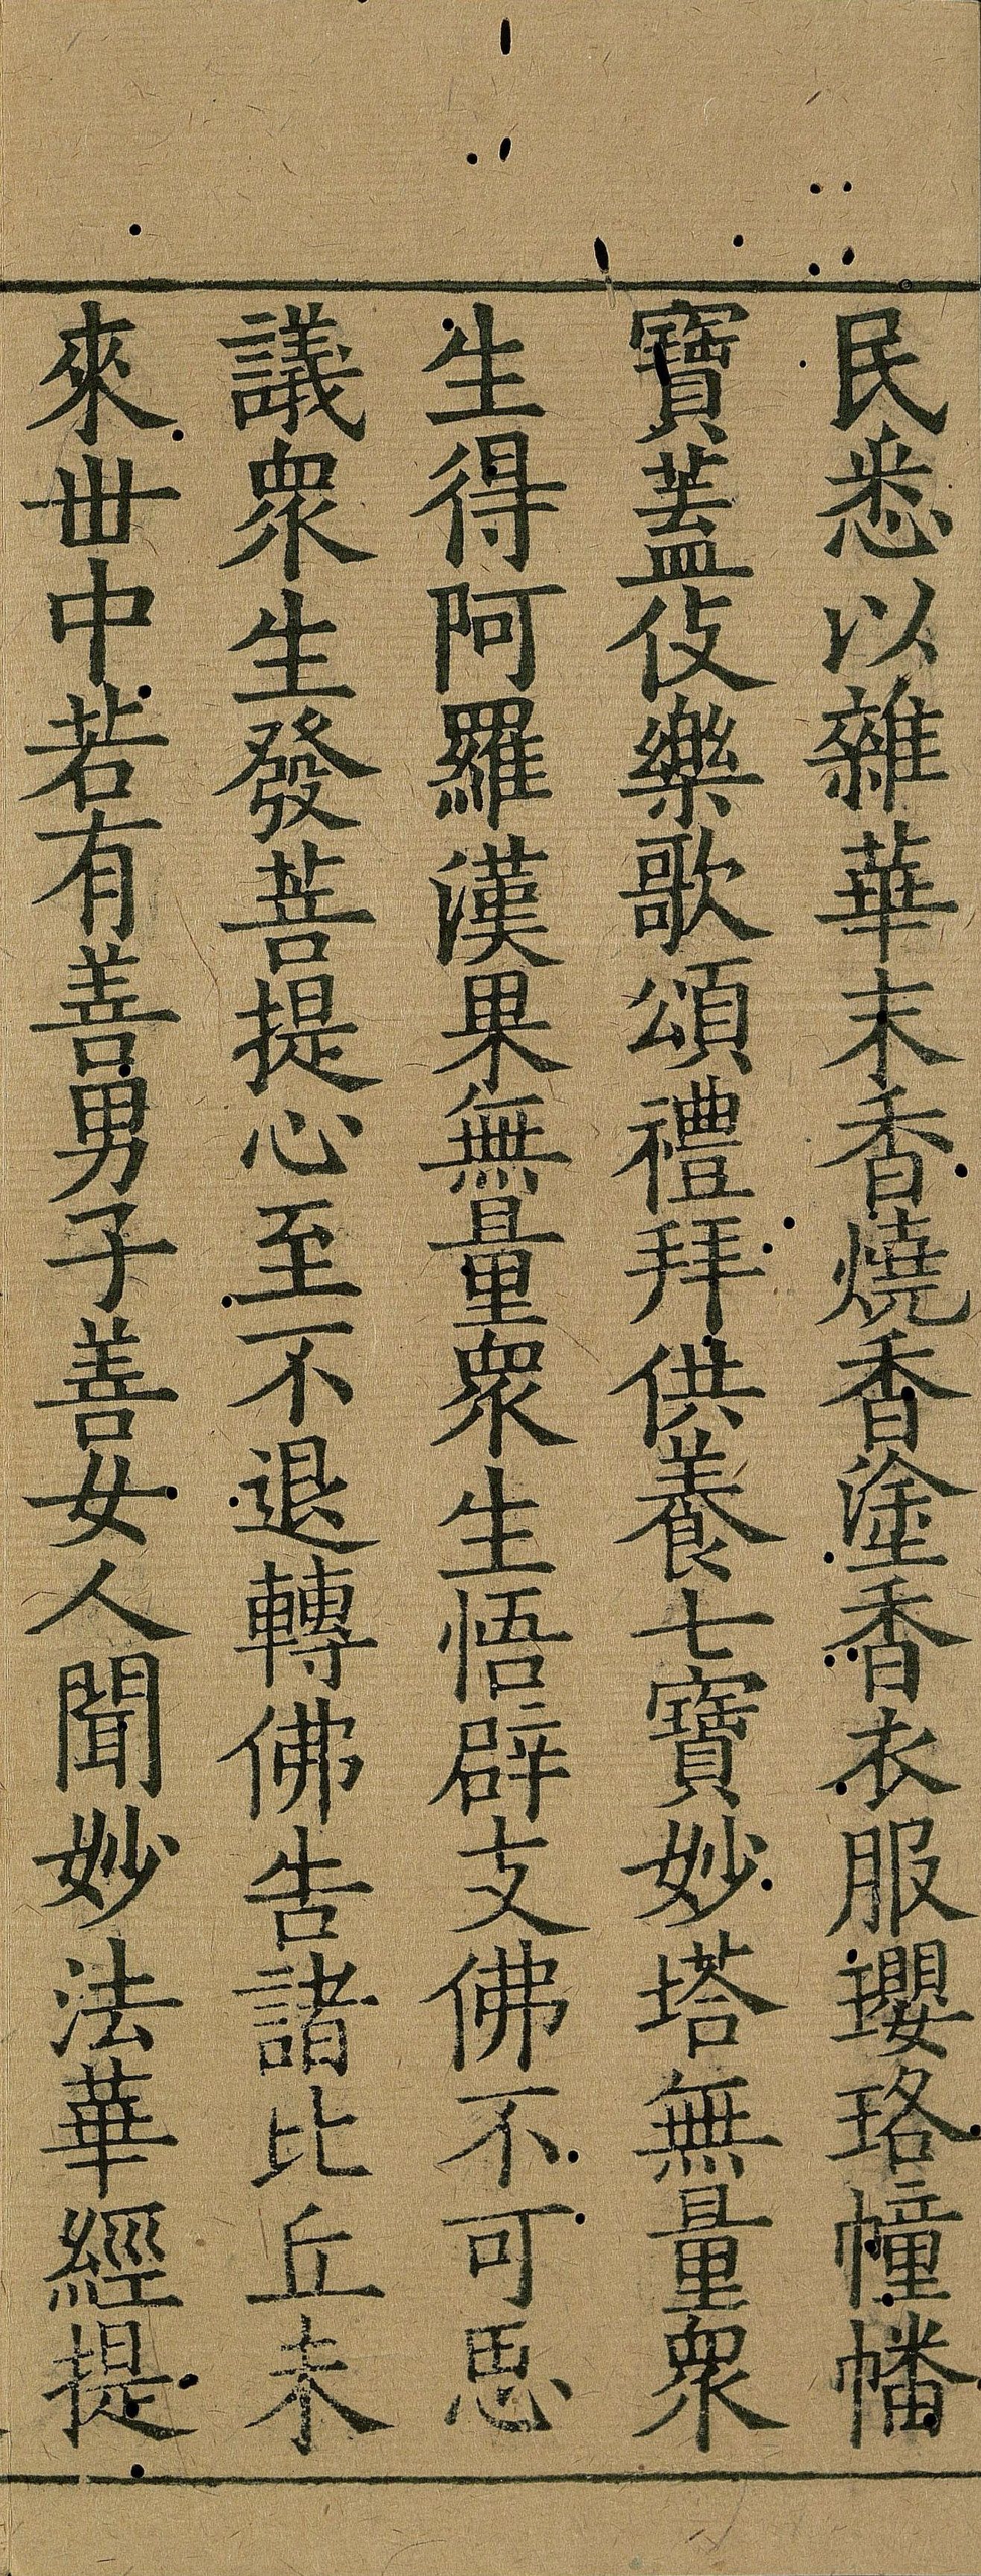 民悉以雜華末香燒香塗香衣服瓔珞幢幡
寶蓋伎樂歌頌禮拜供養七寶妙塔無量衆
生得阿羅漢果無量衆生悟辟支佛不可思
議衆生發菩提心至不退轉佛告諸比丘未
來丗中若有善男子善女人聞妙法華經提